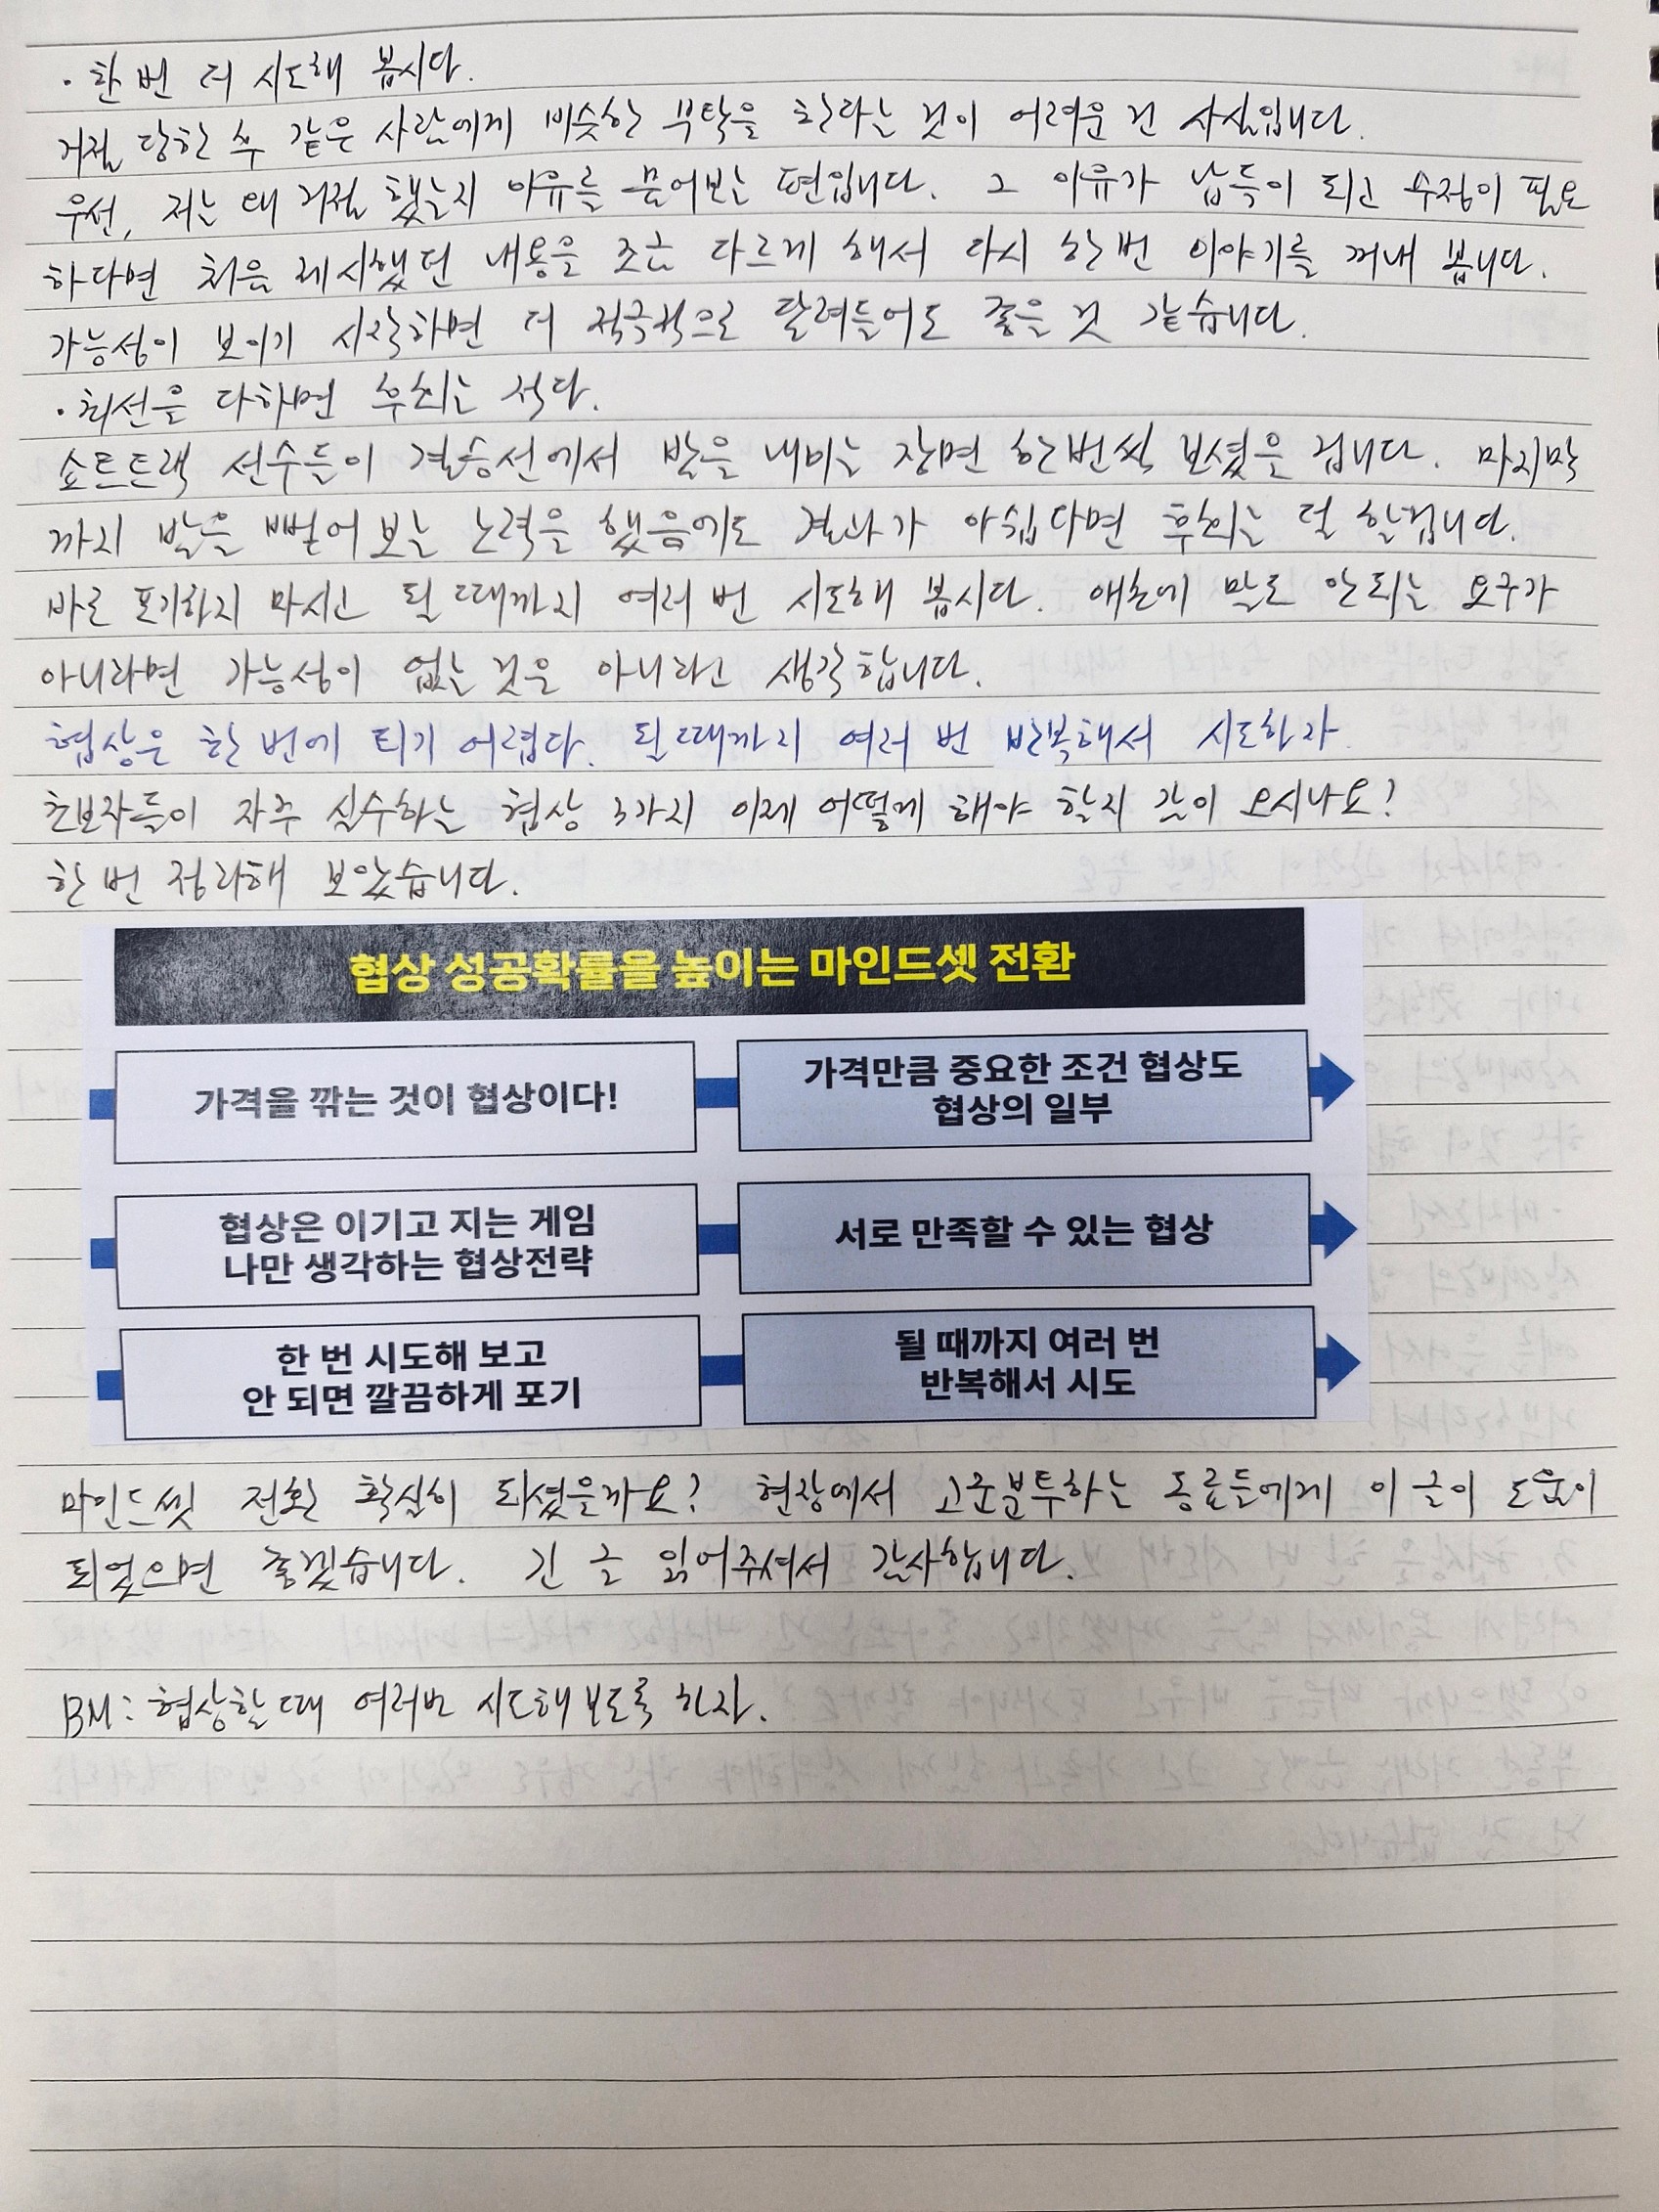 · 한 번 더 시도해 봅시다.
거절 당한 후 같은 사람에게 비슷한 부탁을 한다는 것이 어려운 건 사실입니다.
우선, 저는 왜 거절 했는지 이유를 물어보는 편입니다. 그 이유가 납득이 되고 수정이 필요
하다면 처음 제시했던 내용을 조금 다르게 해서 다시 한번 이야기를 꺼내 봅니다.
가능성이 보이기 시작하면 더 적극적으로 달려들어도 좋을 것 같습니다.
· 최선을 다하면 후회는 적다.
쇼트트랙 선수들이 결승선에서 발을 내미는 장면 한번씩 보셨을 겁니다. 마지막
까지 발을 뻗어 보는 노력을 했음에도 결과가 아쉽다면 후회는 덜 할겁니다.
바로 포기하지 마시고 될 때까지 여러 번 시도해 봅시다. 애초에 말도 안되는 요구가
아니라면 가능성이 없는 것은 아니라고 생각합니다.
협상은 한 번에 되기 어렵다. 될 때까지 여러 번 반복해서 시도하자
초보자들이 자주 실수하는 협상 3가지 이제 어떻게 해야 할지 감이 오시나요?
한 번 정리해 보았습니다.
협상 성공확률을 높이는 마인드셋 전환
가격을 깎는 것이 협상이다!
가격만큼 중요한 조건 협상도
협상의 일부
협상은 이기고 지는 게임
나만 생각하는 협상전략
서로 만족할 수 있는 협상
한 번 시도해 보고
안 되면 깔끔하게 포기
될 때까지 여러 번
반복해서 시도
마인드셋 전환 확실히 되셨을까요? 현장에서 고군분투하는 동료들에게 이 글이 도움이
되었으면 좋겠습니다. 긴 글 읽어주셔서 감사합니다.
BM: 협상할 때 여러번 시도해보도록 하자.